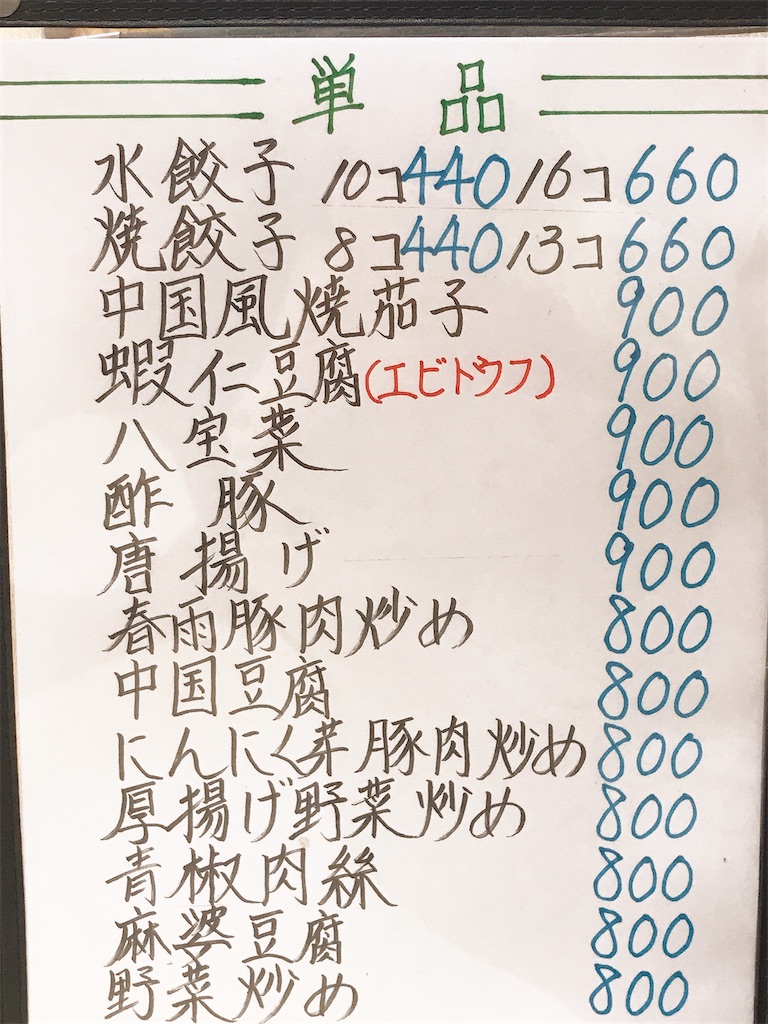 単品
水餃子 10コ440 16コ660
焼餃子 8コ440 13コ660
中国風焼茄子 900
蝦仁豆腐(エビドウフ) 900
八宝菜 900
酢豚 900
唐揚げ 900
春雨豚肉炒め 800
中国豆腐 800
にんにく芽豚肉炒め 800
厚揚げ野菜炒め 800
青椒肉絲 800
麻婆豆腐 800
野菜炒め 800